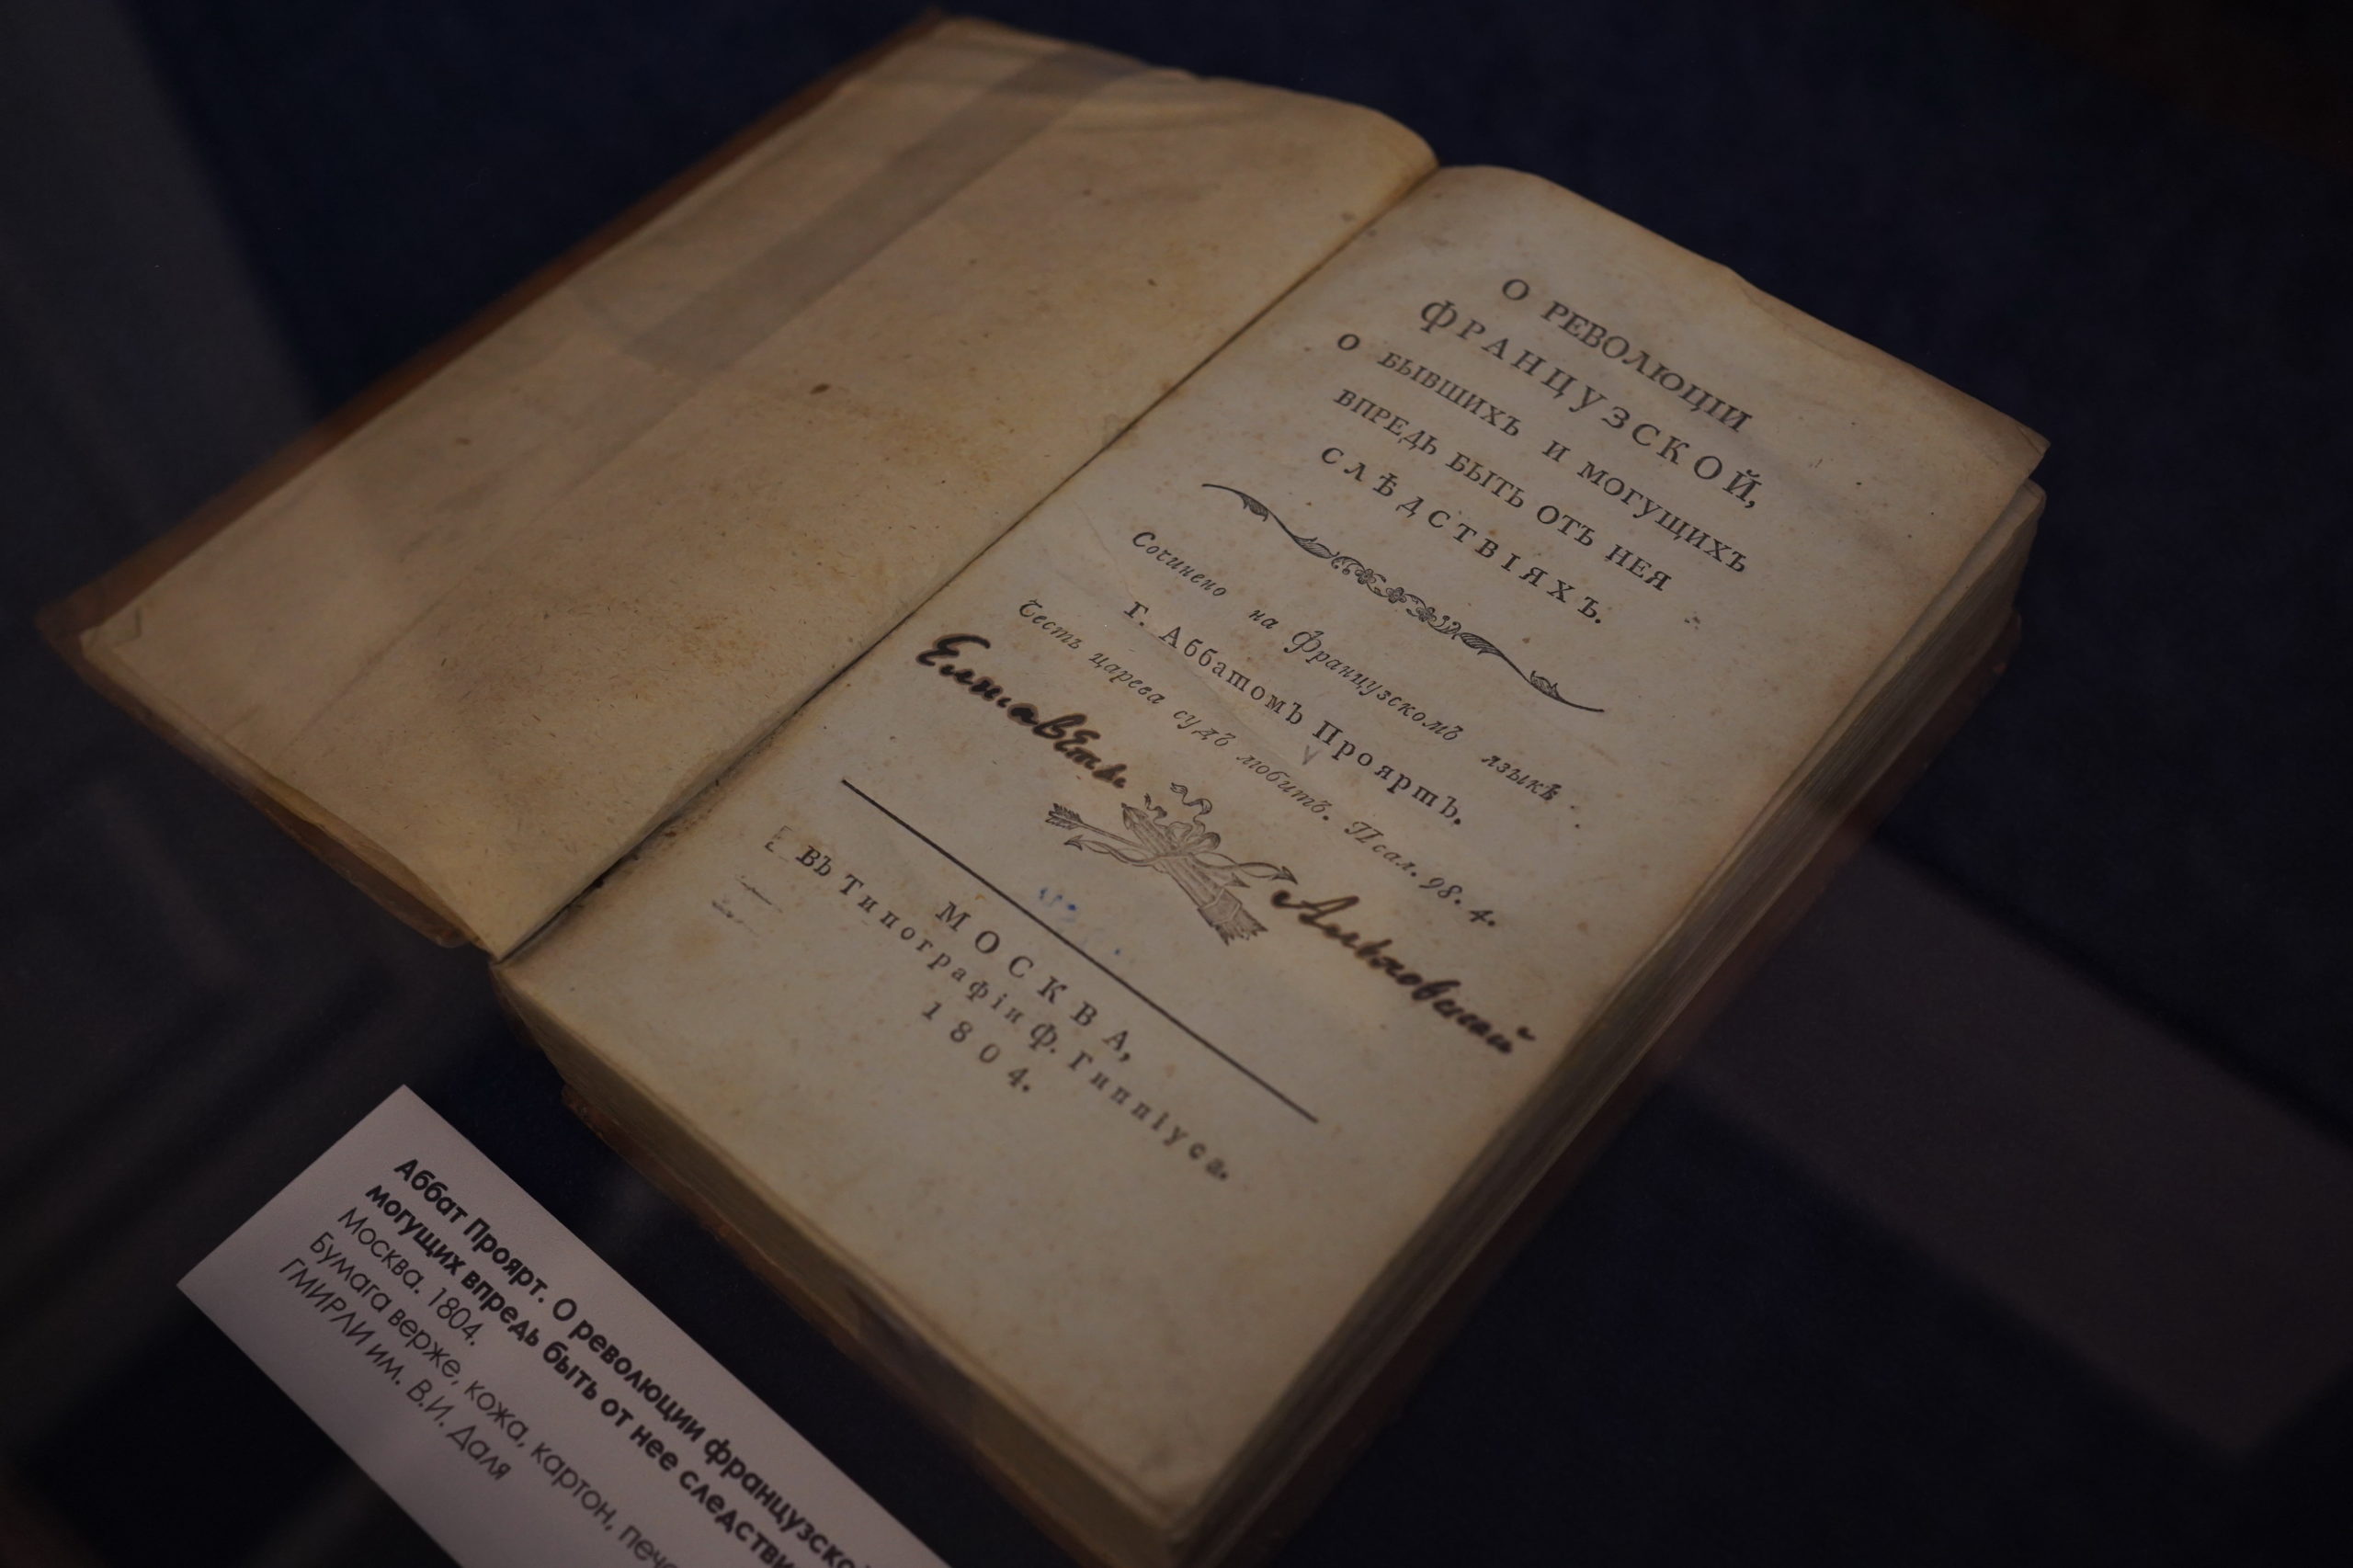 О РЕВОЛЮЦІИ
ФРАНЦУЗСКОЙ,
О БЫВШИХЪ И МОГУЩИХЪ
ВПРЕДЬ БЫТЬ ОТЪ НЕЯ
СЛѢДСТВІЯХЪ.
Сочинено на Французскомъ языкѣ
Г. Аббатомъ Прояртъ.
Честь царева судъ любитъ. Псал. 98. 4.
Елисавѣты
Альховской
МОСКВА,
ВЪ Типографіи Ф. Гиппіуса.
1804.
Аббат Проярт. О революции французской
могущих впредь быть от нее следстви
Москва. 1804.
Бумага верже, кожа, картон, печа
ГМИРЛИ им. В.И. Даля